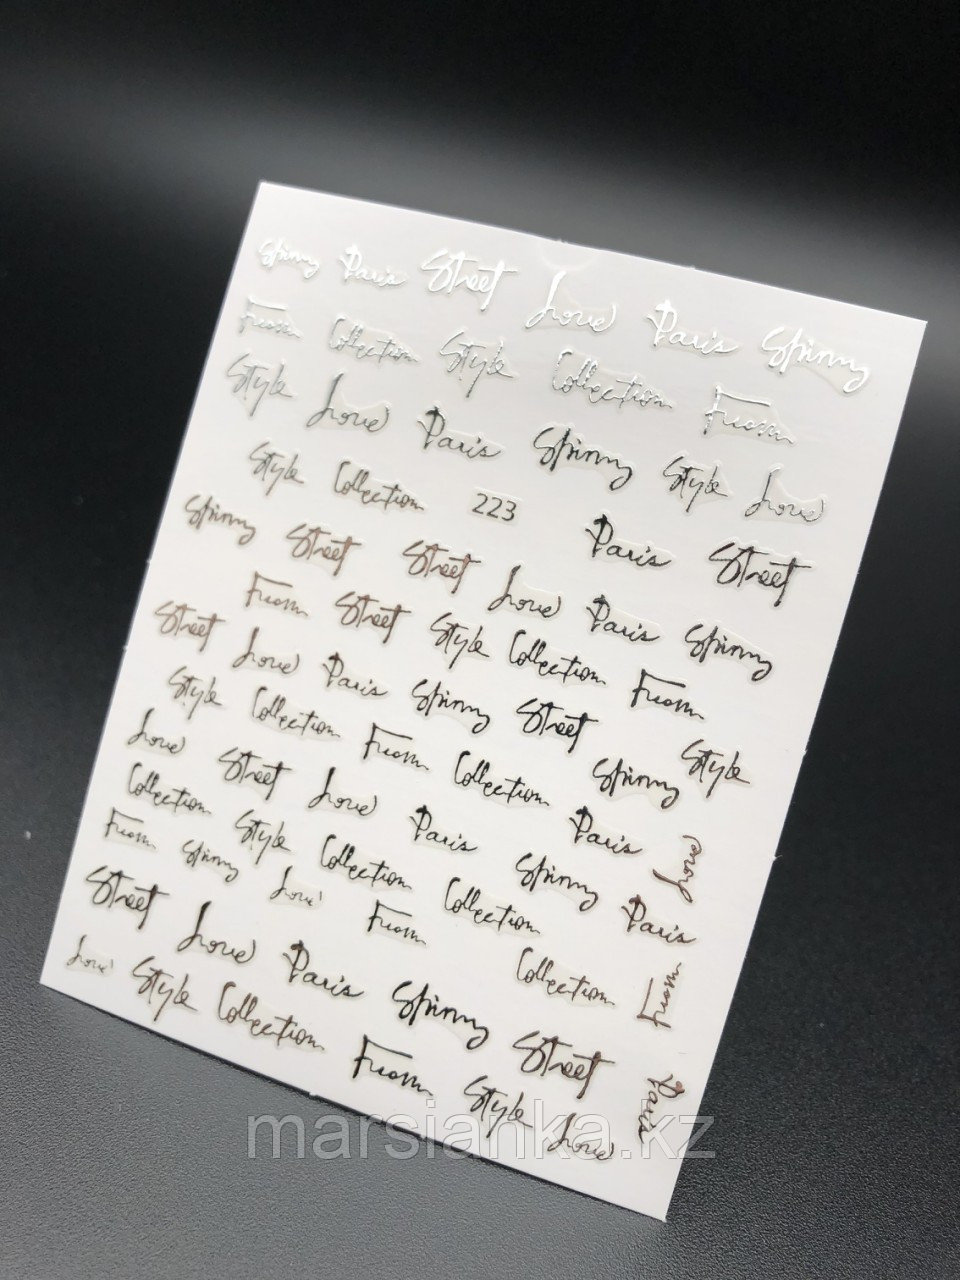 Spinny Paris Street Love Paris Spinny
From Collection Style Collection From
Style Love Paris Spinny Style Love
Style Collection 223 Paris Street
Spinny Street Street Love Paris Spinny
From Street Style Collection From
Street Love Paris Spinny Street Style
Style Collection From Collection Spinny
Love Street Love Paris Paris Love
Collection Style Collection Spinny Paris
From Spinny Love From Collection
Street Love Paris Spinny Collection From
Love Style Collection Street
From Style Love Paris
marsianka.kz